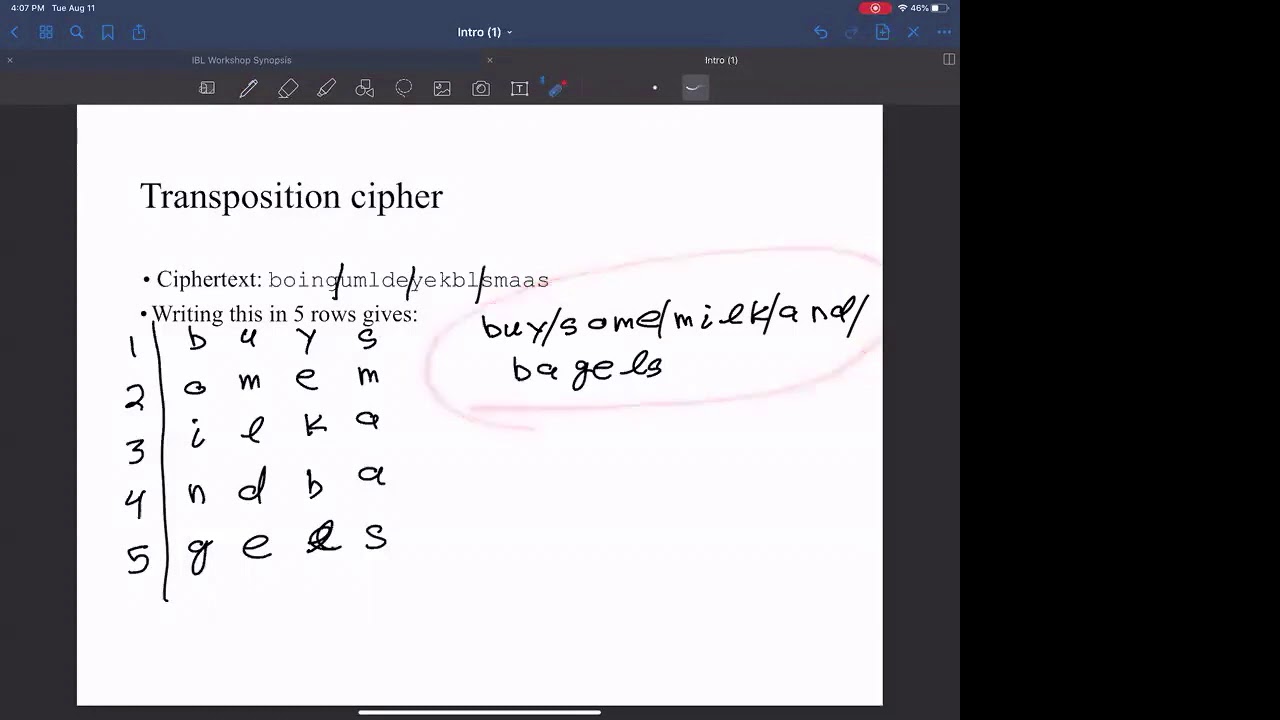 4:07 PM Tue Aug 11
46%
Intro (1)
IBL Workshop Synopsis
Intro (1)
Transposition cipher
• Ciphertext: boing/umlde/yekbl/smaas
• Writing this in 5 rows gives:
buy/some/milk/and/
bagels
1 b u y s
2 o m e m
3 i l k a
4 n d b a
5 g e l s